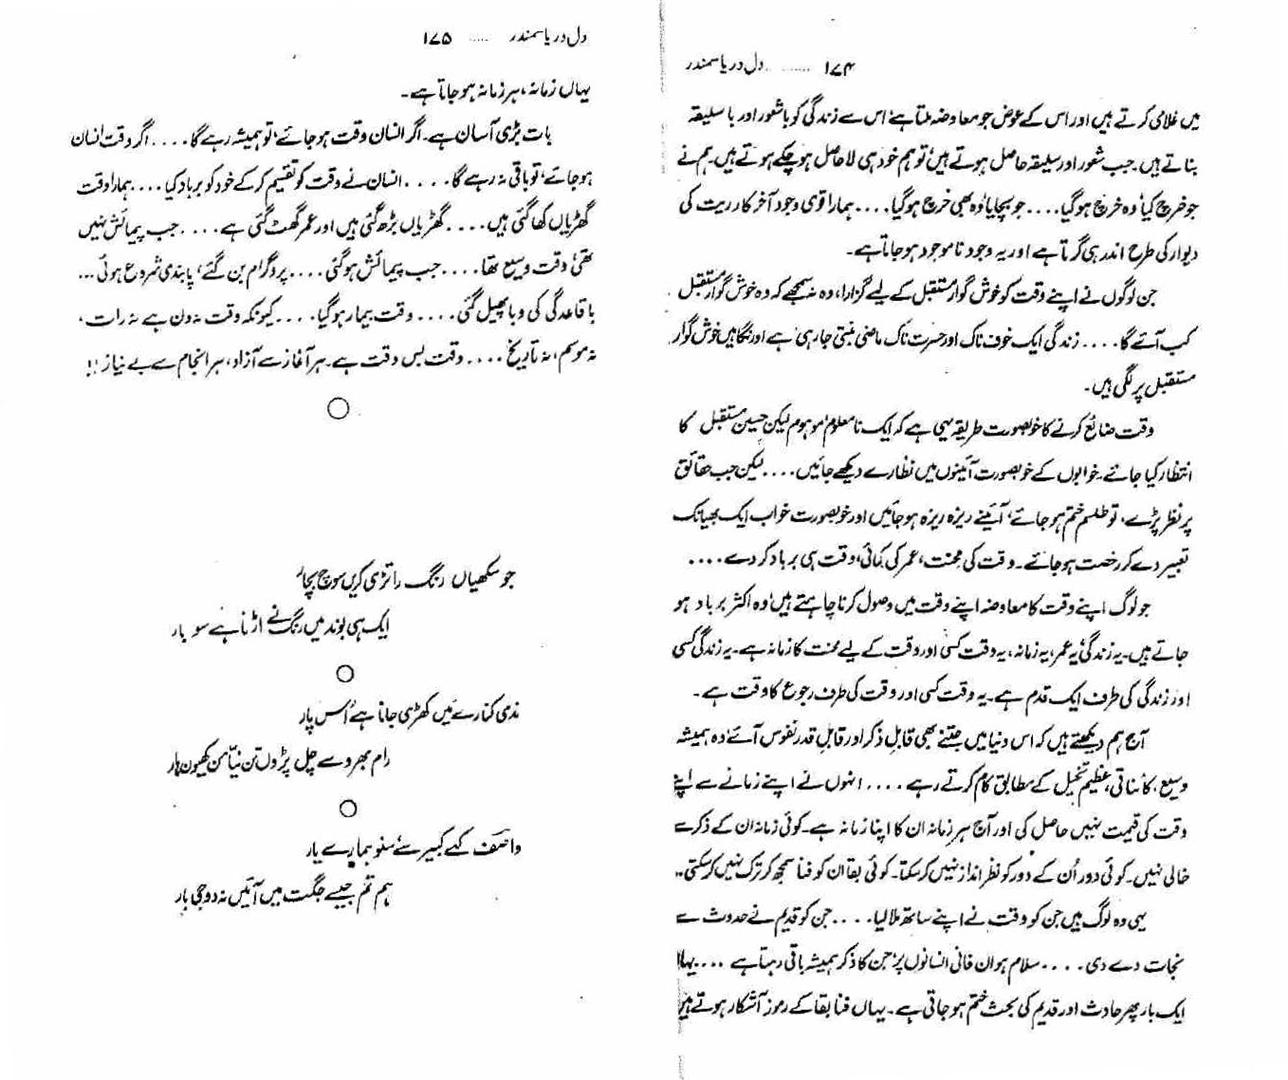 ۱۷۴ ........ دل دریا سمندر
میں غلامی کرتے ہیں اور اس کے عوض جو معاوضہ ملتا ہے اس سے زندگی کو باشعور اور با سلیقہ
بناتے ہیں۔ جب شعور اور سلیقہ حاصل ہوتے ہیں تو ہم خود ہی لاحاصل ہو چکے ہوتے ہیں۔ ہم نے
جو خرچ کیا، وہ خرچ ہو گیا.... جو بچایا، وہ بھی خرچ ہو گیا.... ہمارا قوی وجود آخر کار ریت کی
دیوار کی طرح اندر ہی گرتا ہے اور یہ وجود نا موجود ہو جاتا ہے۔
جن لوگوں نے اپنے وقت کو خوش گوار مستقبل کے لیے گزارا، وہ نہ سمجھے کہ وہ خوش گوار مستقبل
کب آئے گا.... زندگی ایک خوف ناک اور حسرت ناک ماضی بنتی جا رہی ہے اور نگاہیں خوش گوار
مستقبل پر لگی ہیں۔
وقت ضائع کرنے کا خوبصورت طریقہ یہی ہے کہ ایک نامعلوم، موہوم لیکن حسین مستقبل کا
انتظار کیا جائے۔ خوابوں کے خوبصورت آئینوں میں نظارے دیکھے جائیں.... لیکن جب حقائق
پر نظر پڑے، تو طلسم ختم ہو جائے، آئینے ریزہ ریزہ ہو جائیں اور خوبصورت خواب ایک بھیانک
تعبیر دے کر رخصت ہو جائے۔ وقت کی محنت، عمر کی کمائی، وقت ہی برباد کر دے....
جو لوگ اپنے وقت کا معاوضہ اپنے وقت میں وصول کرنا چاہتے ہیں، وہ اکثر برباد ہو
جاتے ہیں۔ یہ زندگی، یہ عمر، یہ زمانہ، یہ وقت کسی اور وقت کے لیے محنت کا زمانہ ہے۔ یہ زندگی کسی
اور زندگی کی طرف ایک قدم ہے۔ یہ وقت کسی اور وقت کی طرف رجوع کا وقت ہے۔
آج ہم دیکھتے ہیں کہ اس دنیا میں جتنے بھی قابلِ ذکر اور قابلِ قدر نفوس آئے، وہ ہمیشہ
وسیع، کائناتی، عظیم تخیل کے مطابق کام کرتے رہے.... انہوں نے اپنے زمانے سے اپنے
وقت کی قیمت نہیں حاصل کی اور آج ہر زمانہ ان کا اپنا زمانہ ہے۔ کوئی زمانہ ان کے ذکر سے
خالی نہیں۔ کوئی دور اُن کے دور کو نظر انداز نہیں کر سکتا۔ کوئی بقا ان کو فنا سمجھ کر ترک نہیں کر سکتی..
یہی وہ لوگ ہیں جن کو وقت نے اپنے ساتھ ملا لیا.... جن کو قدیم نے حدوث سے
نجات دے دی.... سلام ہو ان فانی انسانوں پر، جن کا ذکر ہمیشہ باقی رہتا ہے .... یہاں
ایک بار پھر حادث اور قدیم کی بحث ختم ہو جاتی ہے۔ یہاں فنا بقا کے رموز آشکار ہوتے ہیں
دل دریا سمندر ..... ۱۷۵
یہاں زمانہ، ہر زمانہ ہو جاتا ہے۔
بات بڑی آسان ہے۔ اگر انسان وقت ہو جائے، تو ہمیشہ رہے گا.... اگر وقت انسان
ہو جائے، تو باقی نہ رہے گا.... انسان نے وقت کو تقسیم کر کے خود کو برباد کیا.... ہمارا وقت
گھڑیاں کھا گئی ہیں.... گھڑیاں بڑھ گئی ہیں اور عمر گھٹ گئی ہے.... جب پیمائش نہیں
تھی، وقت وسیع تھا.... جب پیمائش ہو گئی.... پروگرام بن گئے، پابندی شروع ہوئی...
باقاعدگی کی وبا پھیل گئی.... وقت بیمار ہو گیا.... کیونکہ وقت نہ دن ہے نہ رات،
نہ موسم، نہ تاریخ.... وقت بس وقت ہے۔ ہر آغاز سے آزاد، ہر انجام سے بے نیاز!!
جو سکھیاں رنگ راتڑی کریں سوچ بچار
ایک ہی بوند میں رنگ نے اڑنا ہے سو بار
ندی کنارے میں کھڑی جانا ہے اُس پار
رام بھروسے چل پڑوں تن نیّا من کھیون ہار
واصف کہے کبیر سے سنو ہمارے یار
ہم تم جیسے جگت میں آئیں نہ دوجی بار